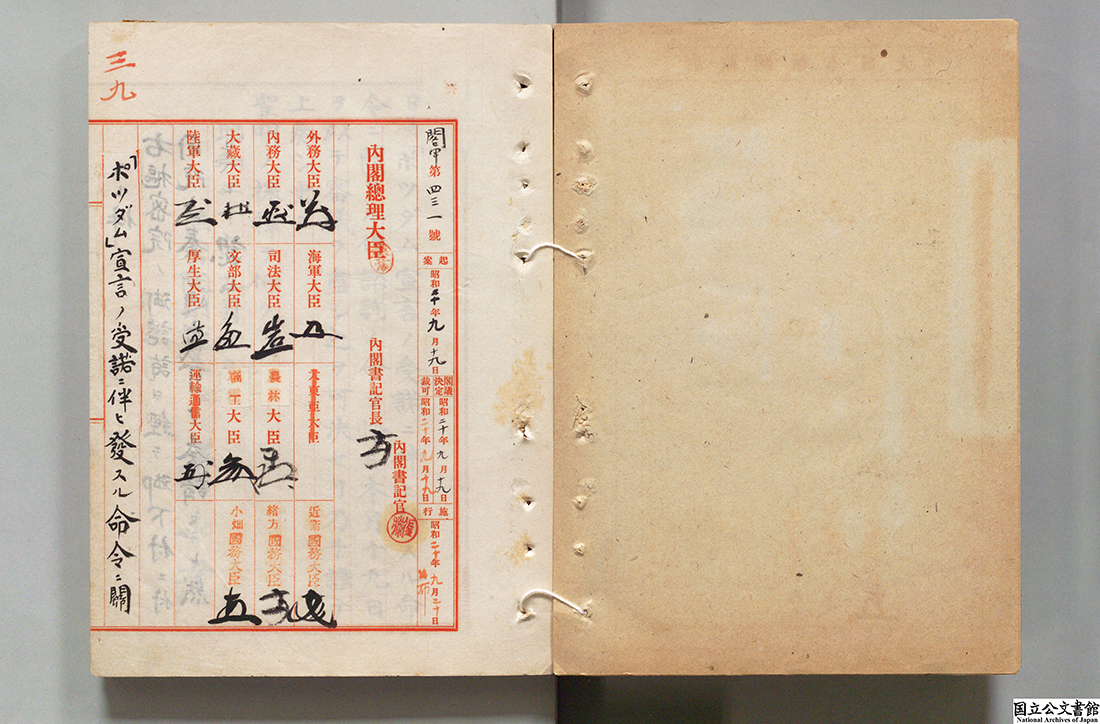 三九
閣甲第四三一號
起案 昭和二十年九月十九日
閣議決定 昭和二十年九月十九日
裁可 昭和二十年九月十九日
施行 昭和二十年九月二十日
內閣總理大臣
內閣書記官長
內閣書記官
外務大臣
海軍大臣
大東亞大臣
近衞國務大臣
內務大臣
司法大臣
農林大臣
緒方國務大臣
大藏大臣
文部大臣
大臣
小畑國務大臣
陸軍大臣
厚生大臣
運輸通信大臣
「ポツダム」宣言ノ受諾ニ伴ヒ發スル命令ニ關
国立公文書館
National Archives of Japan